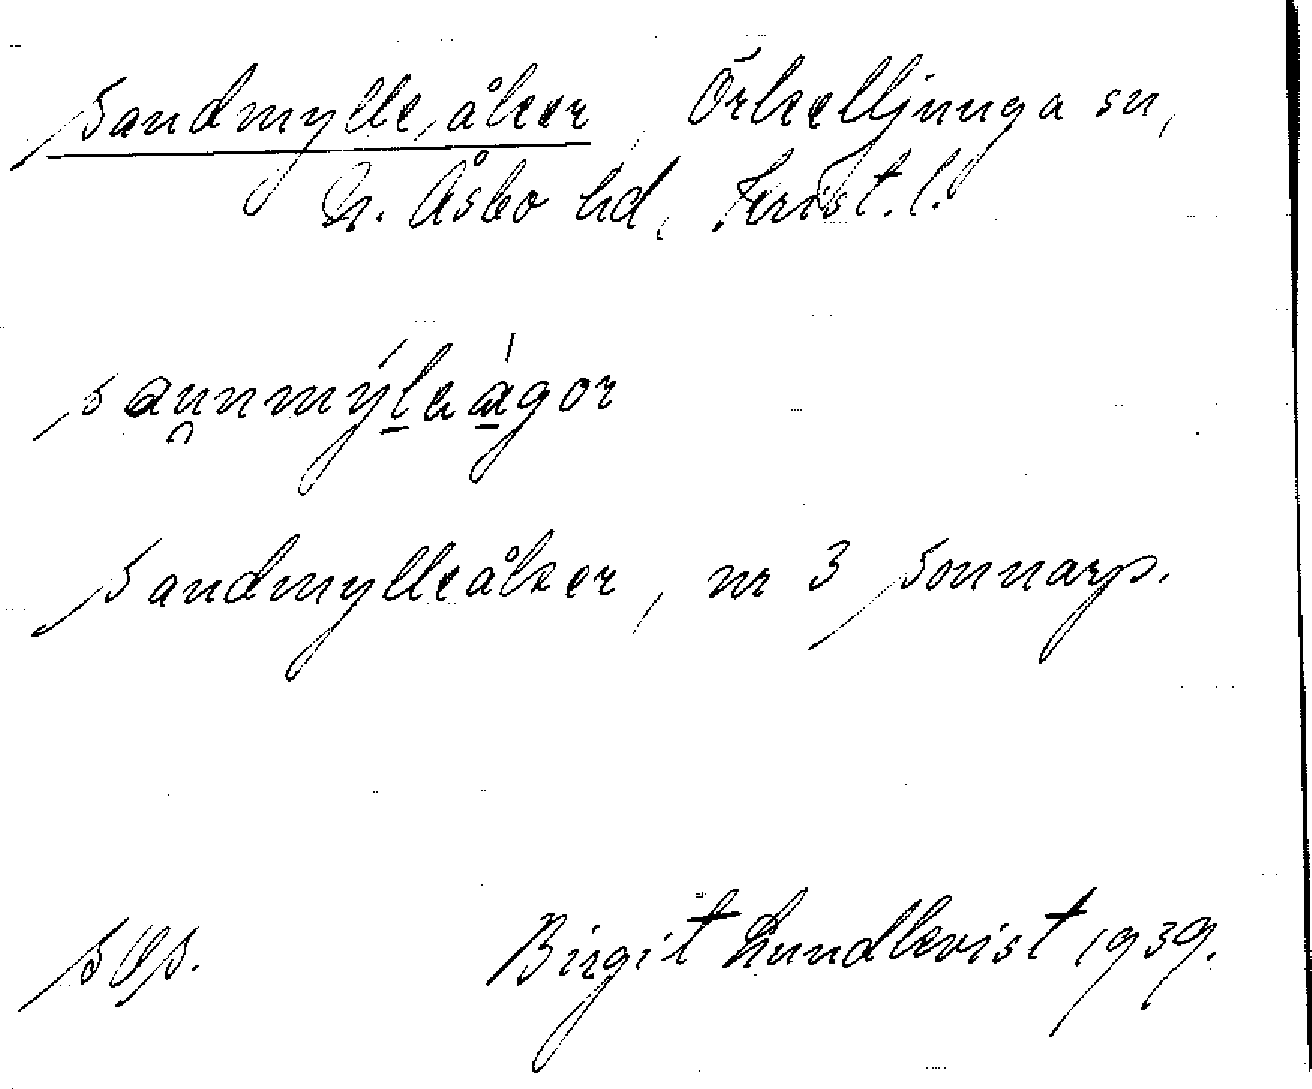 Sandmylle, åker, Örkelljunga sn,
N. Åsbo hd, Krist. l.
saunmýleàgor
Sandmylleåker, nr 3 Sonnarp.
Birgit Lundkvist 1939.